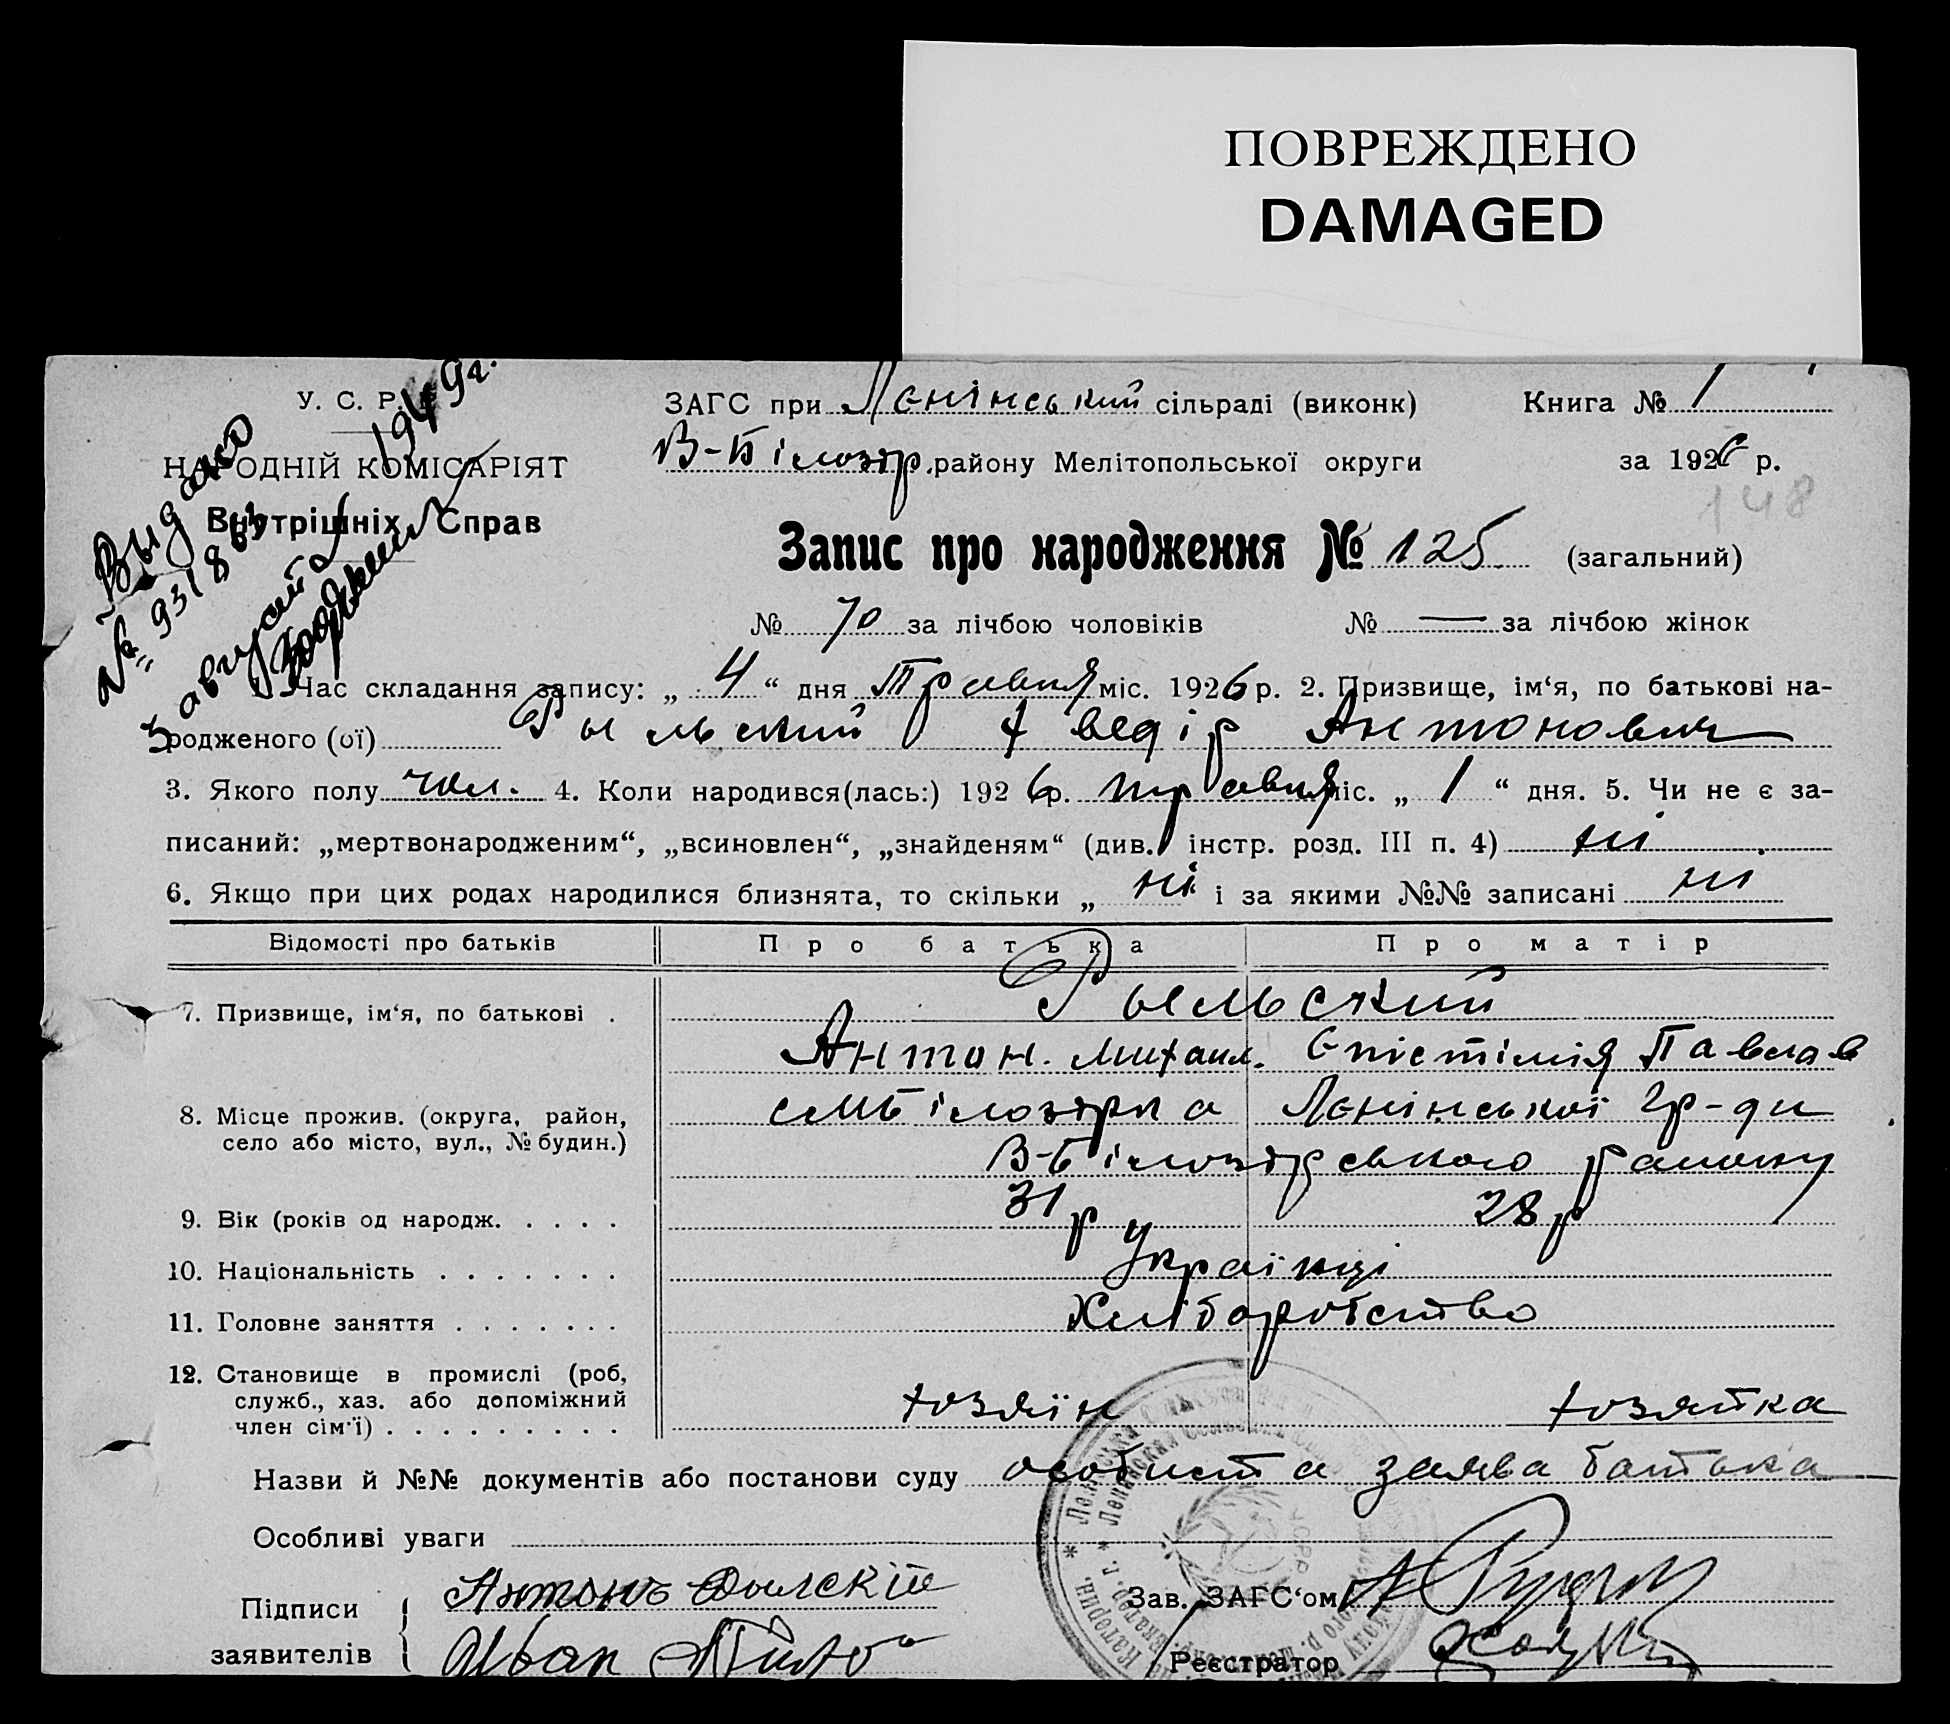 ПОВРЕЖДЕНО
DAMAGED
У. С. Р. Р.
НАРОДНІЙ КОМІСАРІЯТ
Внутрішніх Справ
Выдано
№ 931863
3 августа 1949г.
ЗАГС при Лєнінський сільраді (виконк)
В-Білозір. району Мелітопольської округи
Книга № 1
за 1926 р.
148
Запис про народження № 125 (загальний)
№ 70 за лічбою чоловіків № — за лічбою жінок
Час складання запису: „ 4 “ дня Травня міс. 1926 р. 2. Призвище, ім‘я, по батькові на-
родженого (ої) Рыльский Хведір Антонович
3. Якого полу чол. 4. Коли народився(лась:) 1926 р. травня міс. „ 1 “ дня. 5. Чи не є за-
писаний: „мертвонародженим“, „всиновлен“, „знайденям“ (див. інстр. розд. III п. 4) ні
6. Якщо при цих родах народилися близнята, то скільки „ ні і за якими №№ записані ні
Відомості про батьків Про батька Про матір
7. Призвище, ім‘я, по батькові . Рыльский
Антон. Михаил. Єпістімія Павлов
8. Місце прожив. (округа, район,
село або місто, вул., № будин.)
Білозірка Лєнінської гр-ди
В-Білозірського району
9. Вік (років од народж. . . . . 31 р 28 р
10. Національність . . . . . . . Українці
11. Головне заняття . . . . . . . Хліборобство
12. Становище в промислі (роб,
служб., хаз. або допоміжний
член сім‘ї) . . . . . . . . . хозяїн хозяйка
Назви й №№ документів або постанови суду особиста заява батька
Особливі уваги
Підписи
заявителів
Антонъ Рылскій
Иван
Зав. ЗАГС‘ом
Реєстратор
УСРР